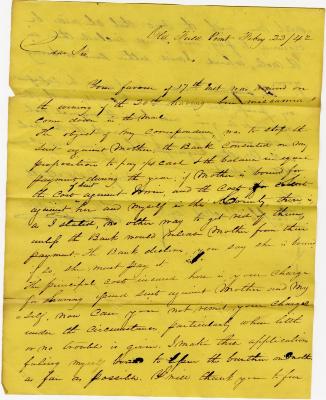 Point Feby. 23/42
Dear Sir
Your favour of 17th Inst. was received on
the evening of the 20th having been
come down in the Mail
The object of my Correspondence, was to stop the
suit against Mother, the Bank Consented on my
proposition to pay 1/3 cash & the balance in equal
payments during the year: if Mother is bound for
the Cost against Irwin, and the Cost of
against her and myself in the County there is
as I stated, no other way to get rid of them,
unless the Bank would release Mother from their
payment. The Bank declines, you say she is bound
if so, she must pay it.
The principal cost incurred here is your charge
for drawing spund suit against Mother and My
self, now Can you not remit your charges
under the circumstances particularly when little
or no trouble is given. I make this application
feeling myself to the burthen on Mother
as far as possible. I will thank you to